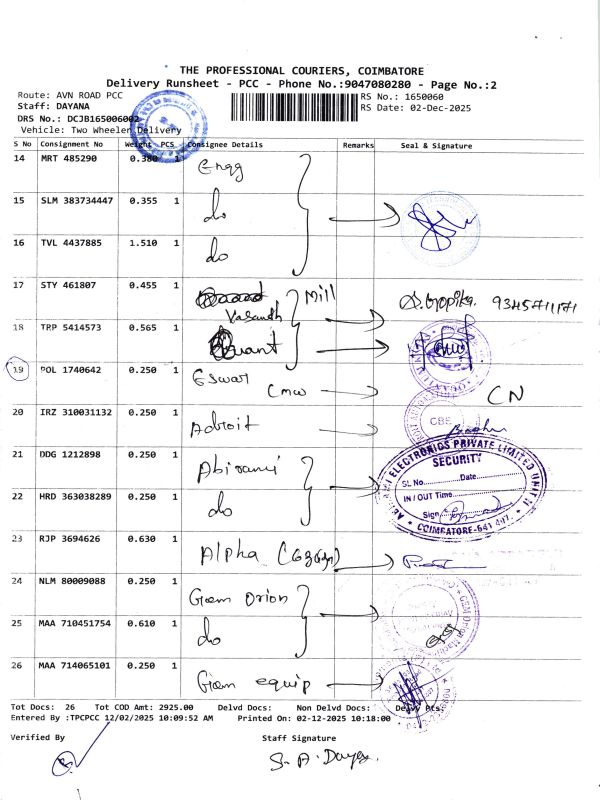 THE PROFESSIONAL COURIERS, COIMBATORE
Delivery Runsheet - PCC - Phone No.:9047080280 - Page No.:2
Route: AVN ROAD PCC
RS No.: 1650060
Staff: DAYANA
RS Date: 02-Dec-2025
DRS No.: DCJB165006002
Vehicle: Two Wheeler Delivery
S No Consignment No Weight PCS Consignee Details Remarks Seal & Signature
14 MRT 485290 0.380 1 Engg
15 SLM 383734447 0.355 1 do
16 TVL 4437885 1.510 1 do
17 STY 461807 0.455 1 Vasanth Mill S. Gopika. 9345711171
18 TRP 5414573 0.565 1
19 POL 1740642 0.250 1 Eswar Cmw CN
20 IRZ 310031132 0.250 1 Adroit
CBE
21 DDG 1212898 0.250 1 Abirami
ELECTRONICS PRIVATE LIMITED UNIT II
SECURITY
SL No. Date
IN / OUT Time
Sign
COIMBATORE-641 407
22 HRD 363038289 0.250 1 do
23 RJP 3694626 0.630 1 Alpha
24 NLM 80009088 0.250 1 Gem Orion
25 MAA 710451754 0.610 1 do
26 MAA 714065101 0.250 1 Gem equip
Tot Docs: 26 Tot COD Amt: 2925.00 Delvd Docs: Non Delvd Docs: Delvy Pts:
Entered By :TPCPCC 12/02/2025 10:09:52 AM Printed On: 02-12-2025 10:18:00
Verified By Staff Signature